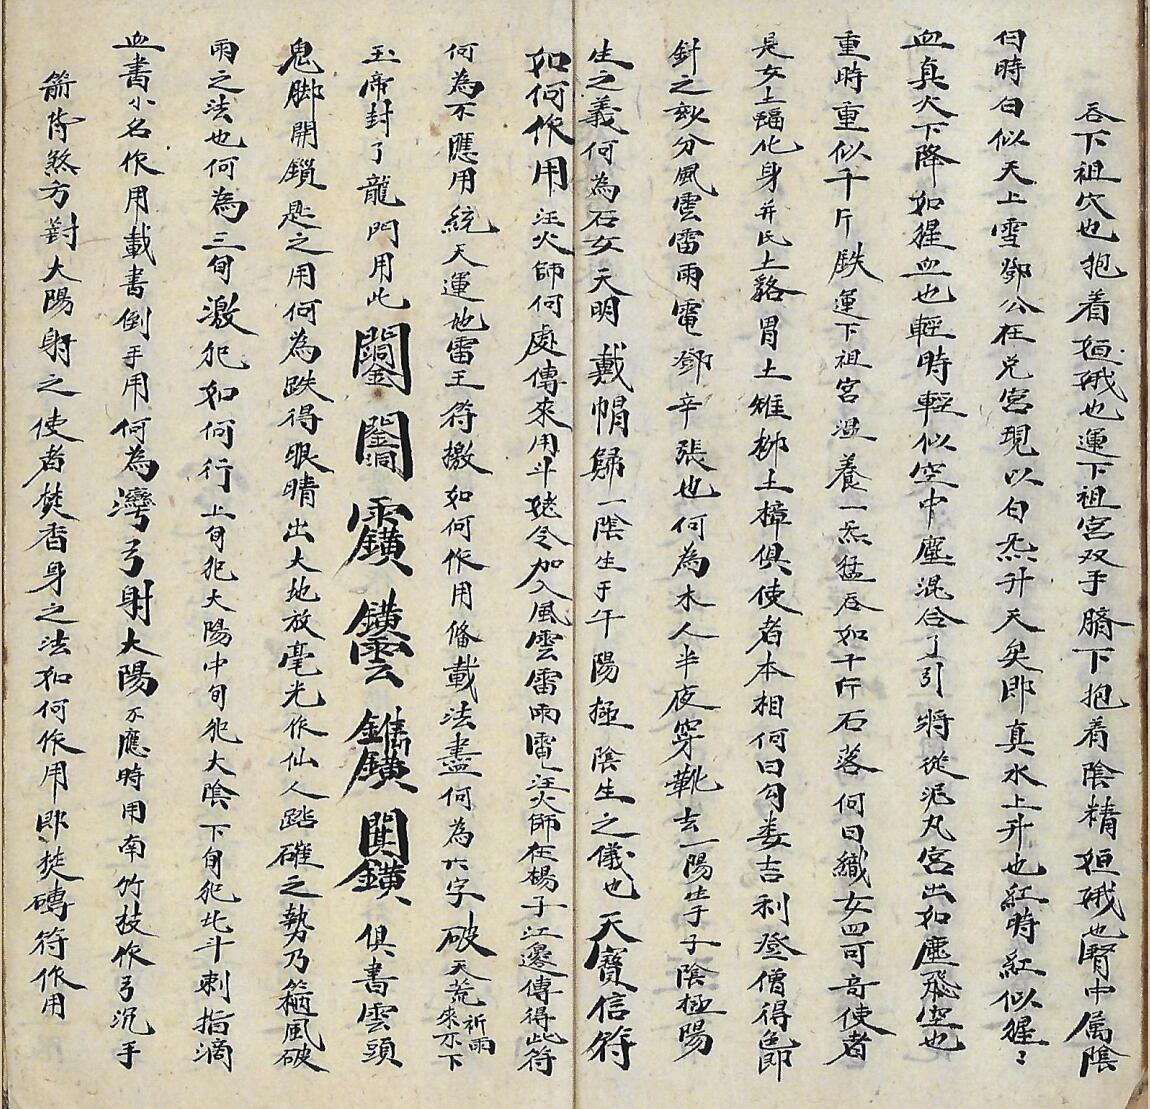 吞下祖穴也抱着姮娥也運下祖宮双手臍下抱着陰精姮娥也腎中属陰
何時白似天上雪鄧公在兌宮現以白炁升天矣即真水上升也紅時紅似猩〻
血真火下降如猩血也輕時輕似空中塵混合了引將從泥丸宮出如塵飛空也
重時重似千斤鉄運下祖宮温養一炁猛吞如千斤石落何曰織女四可音使者
是女土蝠化身并氐土貉胃土雉柳土樟俱使者本相何曰勾娄吉利登僧得色即
針之妙分風雲雷雨電鄧辛張也何為木人半夜穿靴去一陽生于子陰極陽
生之義何為石女天明戴帽歸一陰生于午陽極陰生之儀也天寶信符
如何作用汪火師何處傳來用斗姥令加入風雲雷雨電汪火師在楊子江邊傳得此符
何為不應用統天運地雷王符檄如何作用偹載法盡何為六字破天荒祈雨來不下
玉帝封了龍門用此 俱書雲頭
鬼脚開鎖匙之用何為跌得眼睛出大地放毫光作仙人踏碓之勢乃箍風破
雨之法也何為三旬激犯如何行上旬犯大陽中旬犯大陰下旬犯北斗刺指滴
血書小名作用載書倒手用何為灣弓射大陽不應時用南竹枝作弓沉手
箭背煞方對大陽射之使者焚香身之法如何作用即焚磚符作用